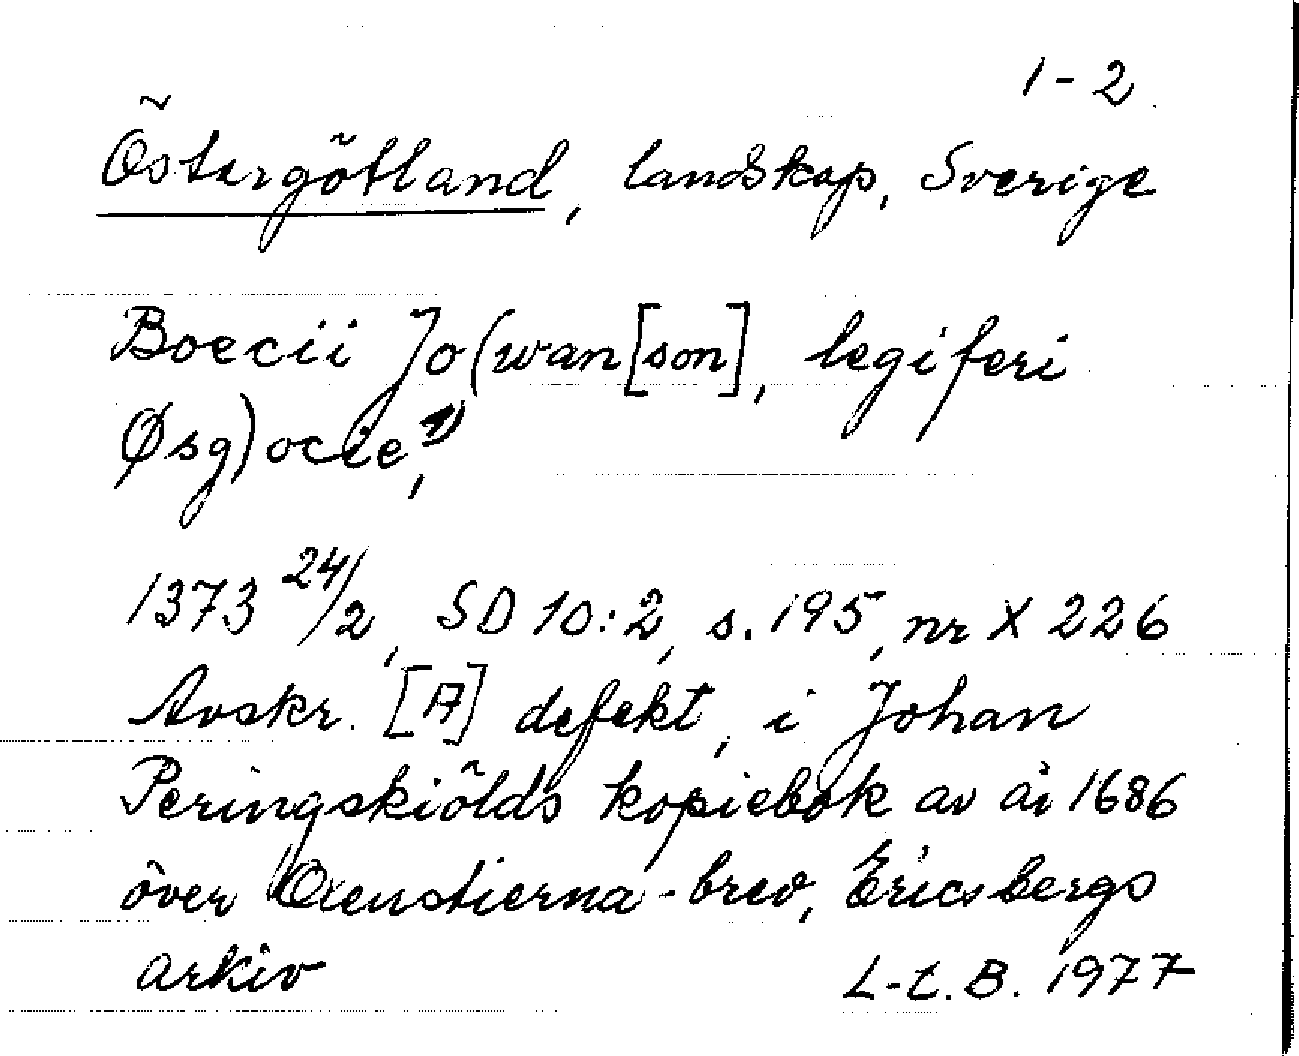 1-2
Östergötland, landskap, Sverige
Boecii Jo(wan[son], legiferi
Øsg)ocie,¹⁾
1373 24/2, SD 10:2, s. 195, nr X 226
Avskr. [A] defekt, i Johan
Peringskiölds kopiebok av år 1686
över Oxenstierna-brev, Ericsbergs
arkiv
L-E.B. 1977